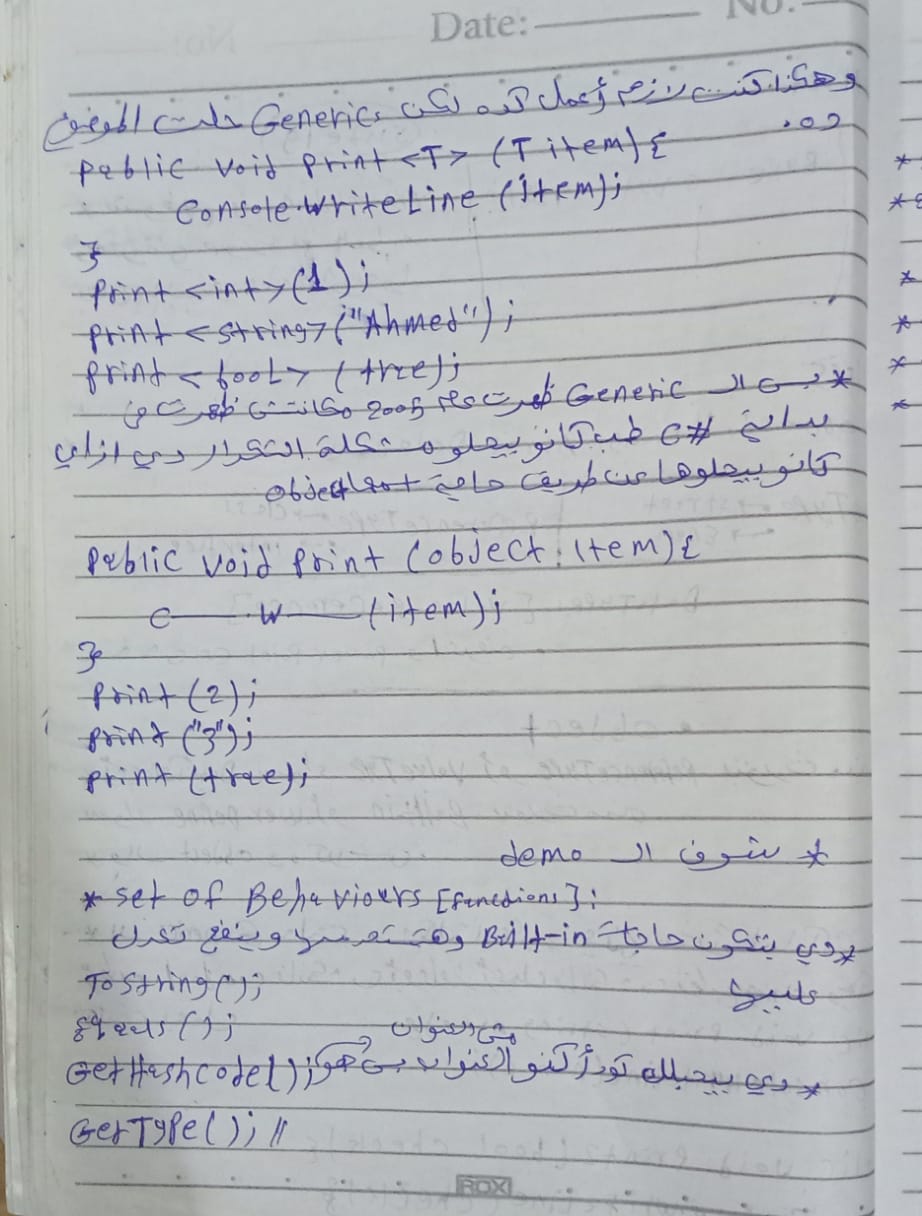 Date: No:
وهكذا كنت لازم أعمل كده لكن Generics خلت الموضوع
كده
Public void Print <T> (T item) {
Console.WriteLine (item);
}
Print <int> (1);
Print <string> ("Ahmed");
Print <bool> (true);
* بس ال Generic ظهرت 2005 مكانتش ظهرت في
بداية C# طب كانو بيحلو مشكلة التكرار دي ازاي
كانو بيحلوها عن طريق حاجة اسمها Object
Public void Print (object item) {
C W (item);
}
Print (2);
Print ("3");
Print (true);
* شوف ال demo
* set of Behaviours [functions]:
* دي بتكون حاجات Built-in وينفع تعدل
عليها
ToString();
Equals();
مش العنوان
GetHashCode(); * دي بيجبلك كود أكنو العنوان بس هو
GetType(); //
ROX